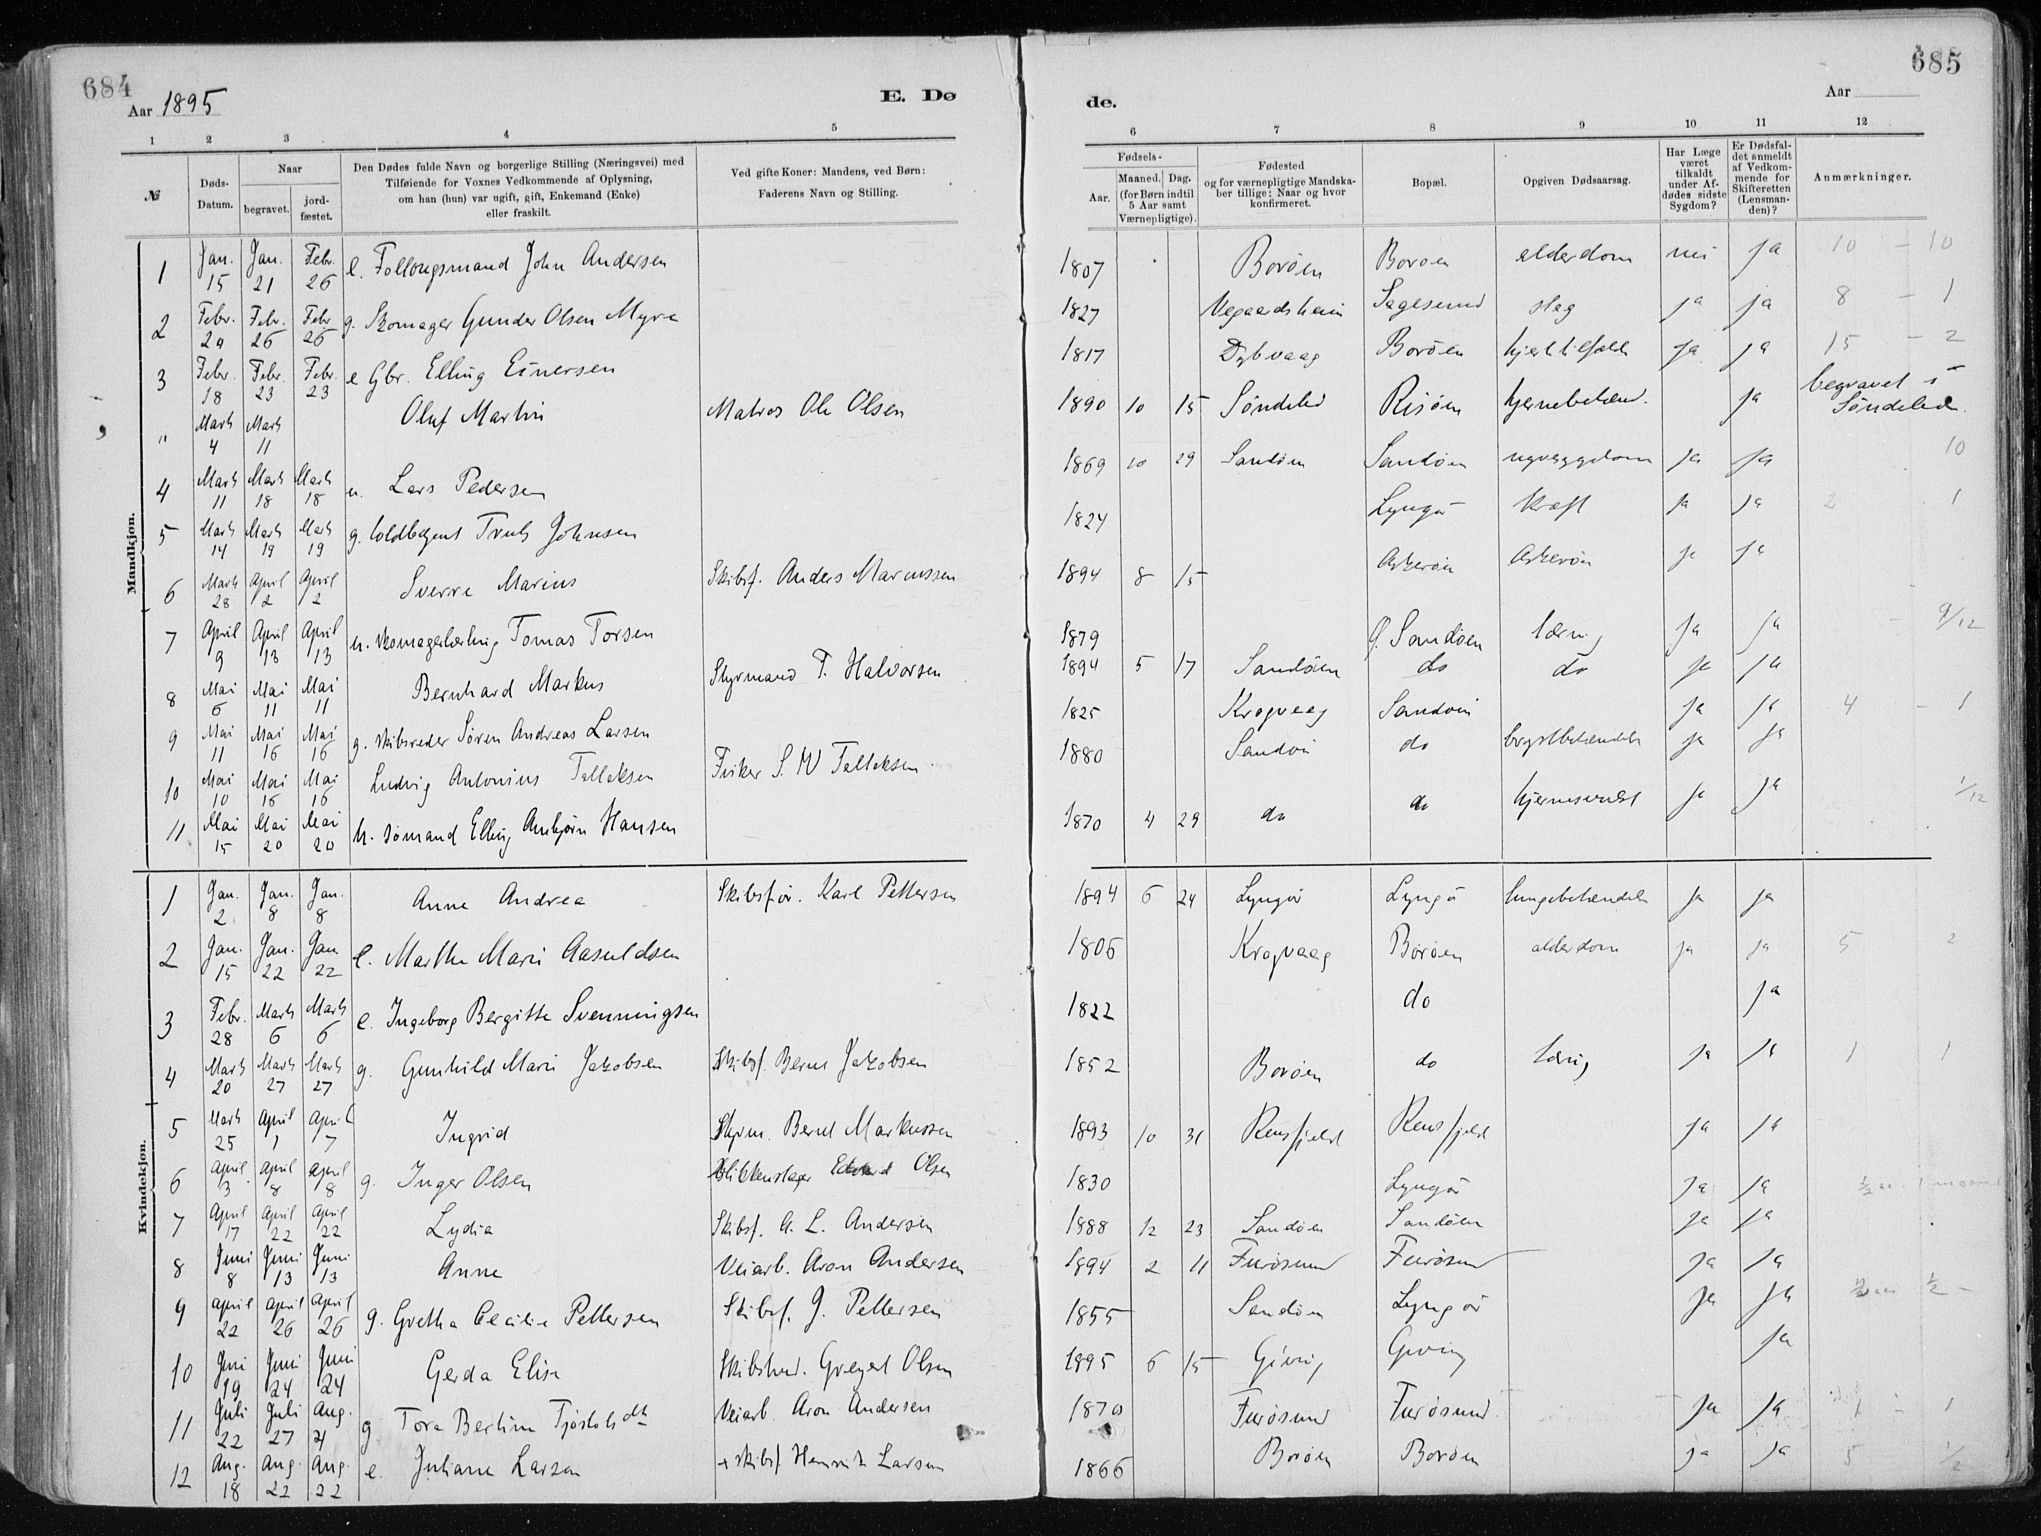 684
Aar 1895
E. Dø
1 2 3 4 5
№
Døds-Datum.
Naar
begravet.
jord-fæstet.
Den Dødes fulde Navn og borgerlige Stilling (Næringsvei) med
Tilføiende for Voxnes Vedkommende af Oplysning,
om han (hun) var ugift, gift, Enkemand (Enke)
eller fraskilt.
Ved gifte Koner: Mandens, ved Børn:
Faderens Navn og Stilling.
Mandkjøn.
1 Jan. 15 Jan. 21 Febr. 26 e. Follougsmand John Andersen
2 Febr. 20 Febr. 26 Febr 26 g. Skomager Gunder Olsen Myra
3 Febr. 18 Febr. 23 Febr. 23 e Gbr. Elling Einersen
" Marts 4 Marts 11 Oluf Martin Matros Ole Olsen
4 Marts 11 Marts 18 Marts 18 u. Lars Pedersen
5 Marts 14 Marts 19 Marts 19 g. Toldbetjent Truls Johnsen
6 Marts 28 April 2 April 2 Sverre Marius Skibsf. Anders Marcussen
7 April 9 April 13 April 13 u. skomagerlærling Tomas Torsen
8 Mai 6 Mai 11 Mai 11 Bernhard Markus Styrmand T. Halvorsen
9 Mai 11 Mai 16 Mai 16 g. skibsreder Søren Andreas Larsen
10 Mai 10 Mai 16 Mai 16 Ludvig Antonius Tellefsen Fisker S. W Tellefsen
11 Mai 15 Mai 20 Mai 20 u. sømand Elling Anbjørn Hansen
Kvindekjøn.
1 Jan. 2 Jan. 8 Jan. 8 Anne Andrea Skibsfør. Karl Pettersen
2 Jan. 15 Jan. 22 Jan 22 e. Marthe Marie Aasuldsen
3 Febr. 28 Marts 6 Marts 6 e. Ingeborg Bergitte Svenningsen
4 Marts 20 Marts 27 Marts 27 g. Gunhild Marie Jakobsen Skibsf. Bernt Jakobsen
5 Marts 25 April 1 April 7 Ingrid Styrm. Bernt Markussen
6 April 3 April 8 April 8 g. Inger Olsen Blikkenslager Edvard Olsen
7 April 17 April 22 April 22 Lydia Skibsf. A. L. Andersen
8 Juni 8 Juni 13 Juni 13 Anne Veiarb. Aron Andersen
9 April 22 April 26 April 26 g. Grethe Cecilie Pettersen Skibsf. J. Pettersen
10 Juni 19 Juni 24 Juni 24 Gerda Elise Skibstvd. Greget Olsen
11 Juli 22 Juli 27 Aug. 4 g Tora Bertine Tjøstolvsdt Veiarb. Aron Andersen
12 Aug. 18 Aug. 22 Aug. 22 e. Juliane Larsen + skibsf Henrik Larsen
685
de.
Aar
6 7 8 9 10 11 12
Fødsels-
Aar.
Maaned. Dag.
(for Børn indtil
5 Aar samt
Værnepligtige).
Fødested
og for værnepligtige Mandska-
ber tillige: Naar og hvor
konfirmeret.
Bopæl.
Opgiven Dødsaarsag.
Har Læge
været
tilkaldt
under Af-
dødes sidste
Sygdom?
Er Dødsfal-
det anmeldt
af Vedkom-
mende for
Skifteretten
(Lensman-
den)?
Anmærkninger.
1807 Borøen Borøen alderdom nei ja 10 - 10
1827 Vegaardsheim Sagesund slag ja ja 8 - 1
1817 Dybvaag Borøen hjertetilfælde ja ja 15 - 2
1890 10 15 Søndeled Risøen hjernebetænd. ja begravet i Søndeled
1869 10 29 Sandøen Sandøen ja ja 10
1824 Lyngør kræft ja ja 2 1
1894 8 15 Askerøen Askerøen ja ja
1879 Ø. Sandøen tæring ja ja 9/12
1894 5 17 Sandøen do do ja ja
1825 Krogvaag Sandøen ja ja 4 - 1
1880 Sandøen do brystbetændelse ja ja
1870 4 29 do do ja ja 1/12
1894 6 24 Lyngør Lyngør lungebetændelse ja ja
1806 Krogvaag Borøen alderdom ja ja 5 2
1822 do ja
1852 Borøen do tæring ja ja 1 1
1893 10 31 Rensfjeld Rensfjeld ja ja
1830 Lyngør ja ja
1888 12 23 Sandøen Sandøen ja ja
1894 2 11 Furøsund Furøsund ja ja
1855 Sandøen Lyngør ja ja
1895 6 15 Gjving Gjving ja
1870 Furøsund Furøsund ja ja 1 - 1
1866 Borøen Borøen ja ja 5 1/2